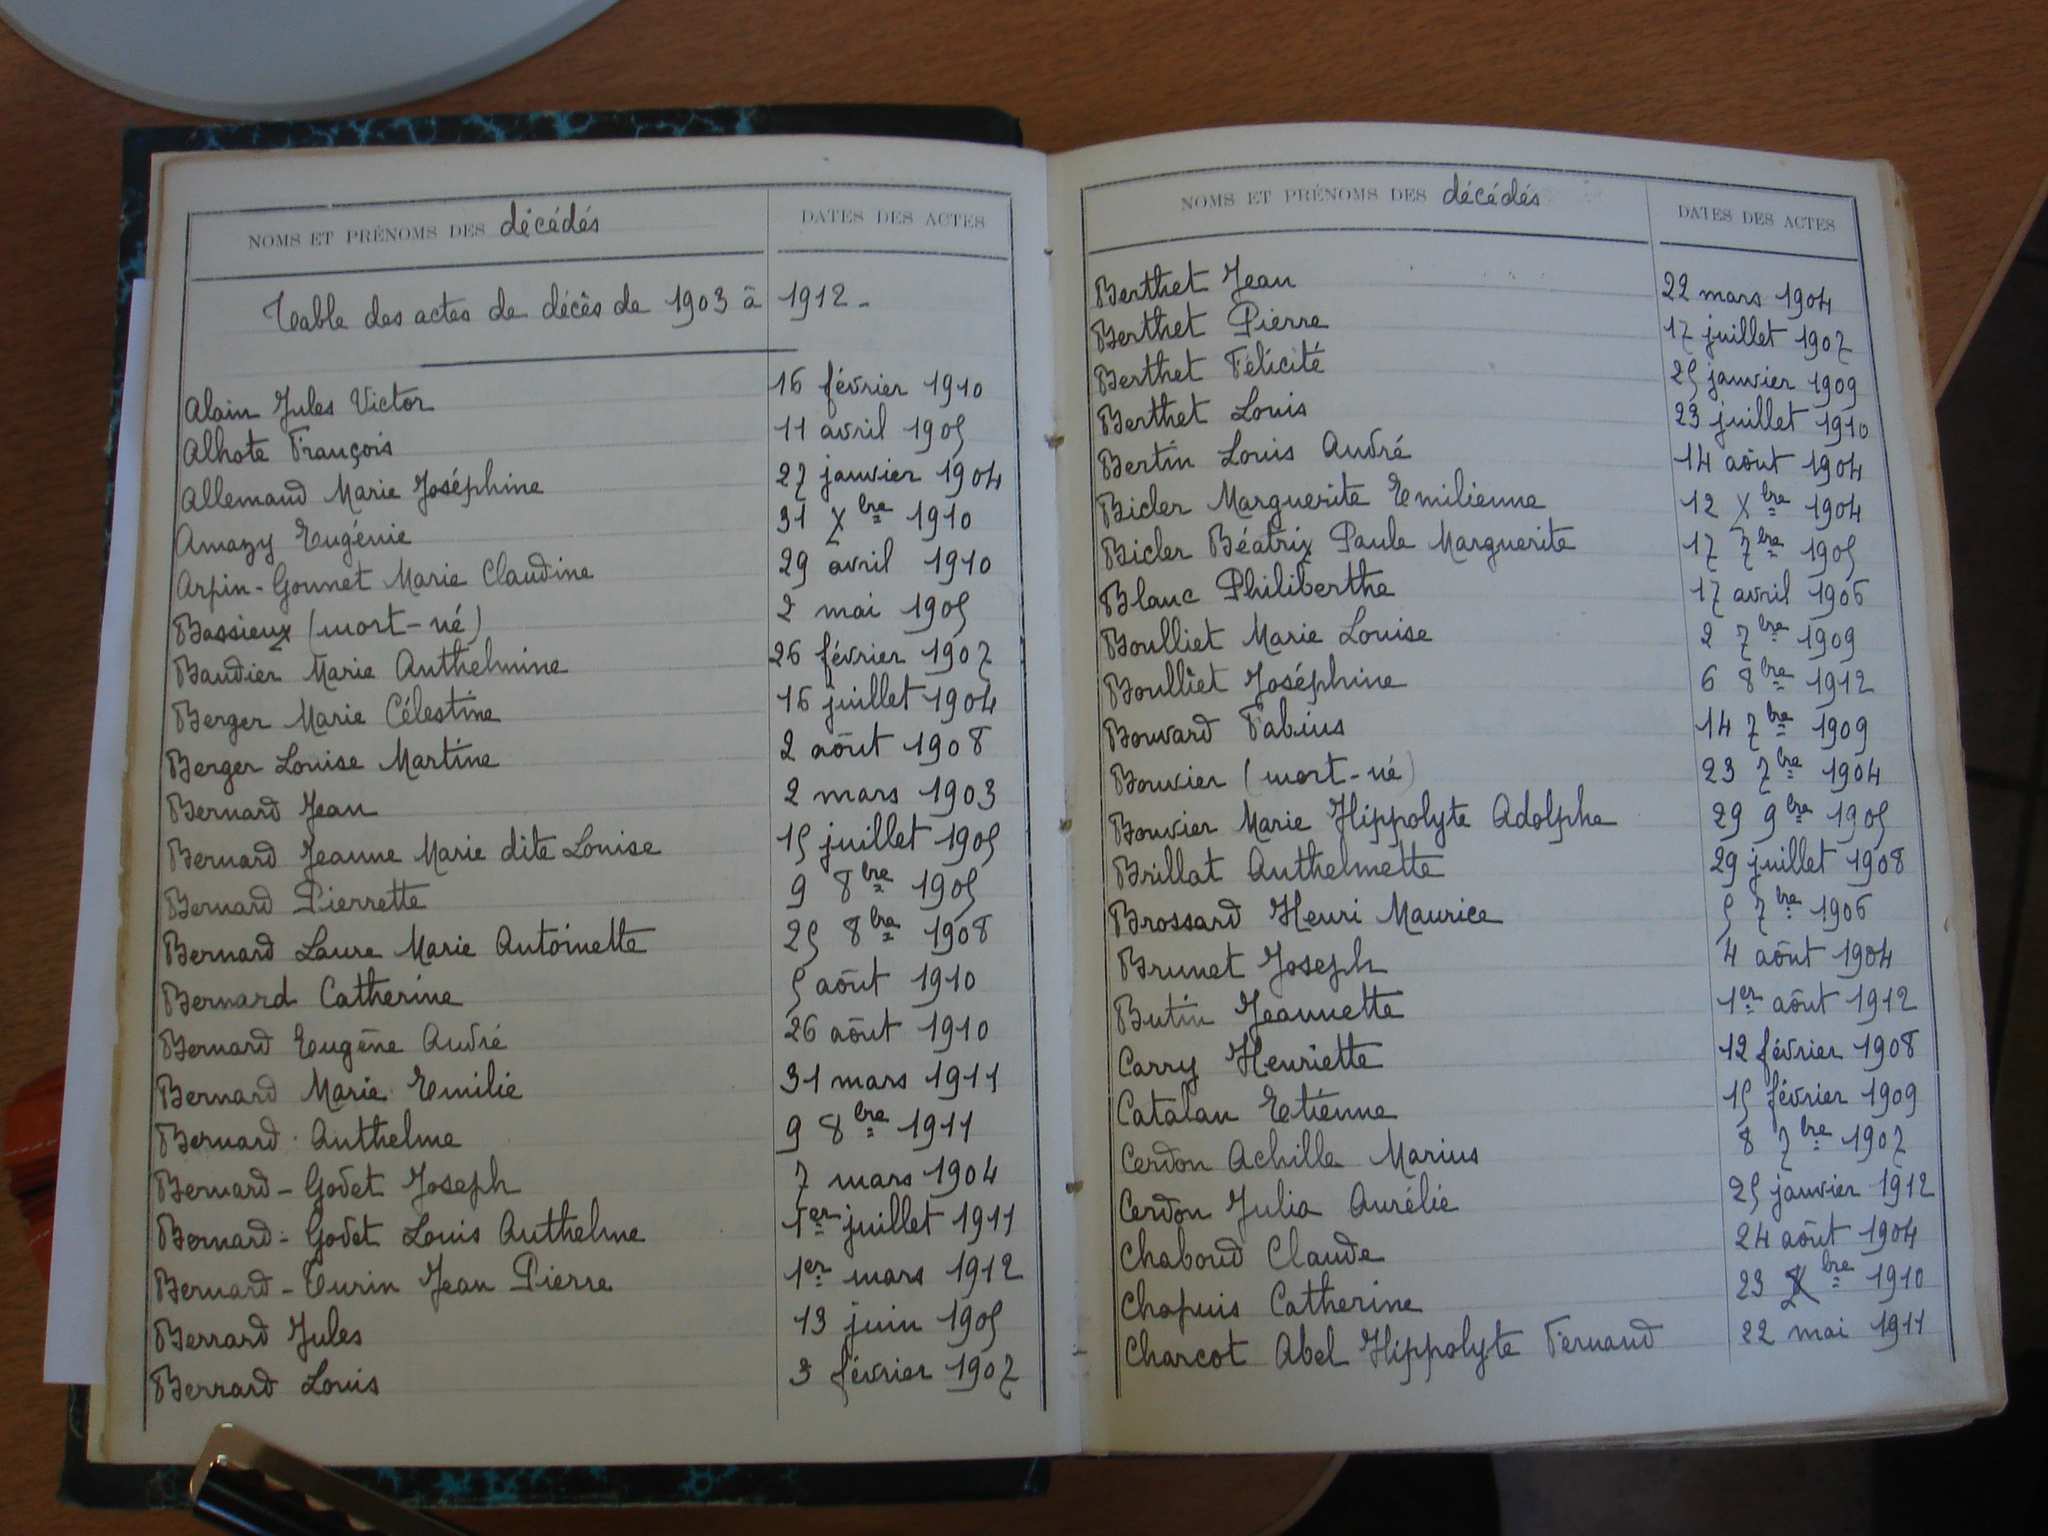 NOMS ET PRÉNOMS DES décédés DATES DES ACTES
Table des actes de décès de 1903 à 1912 -
Alain Jules Victor 16 février 1910
Alhote François 11 avril 1905
Allemand Marie Joséphine 27 janvier 1904
Amazy Eugénie 31 Xbre 1910
Arpin-Gonnet Marie Claudine 29 avril 1910
Bassieux (mort-né) 2 mai 1905
Baudier Marie Anthelmine 26 février 1907
Berger Marie Célestine 16 juillet 1904
Berger Louise Martine 2 août 1908
Bernard Jean 2 mars 1903
Bernard Jeanne Marie dite Louise 15 juillet 1905
Bernard Pierrette 9 8bre 1905
Bernard Laure Marie Antoinette 25 8bre 1908
Bernard Catherine 5 août 1910
Bernard Eugène André 26 août 1910
Bernard Marie Emilie 31 mars 1911
Bernard Anthelme 9 8bre 1911
Bernard-Godet Joseph 7 mars 1904
Bernard-Godet Louis Anthelme 1er juillet 1911
Bernard-Turin Jean Pierre 1er mars 1912
Berrard Jules 13 juin 1905
Berrard Louis 3 février 1907
NOMS ET PRÉNOMS DES décédés DATES DES ACTES
Berthet Jean 22 mars 1904
Berthet Pierre 17 juillet 1907
Berthet Félicité 25 janvier 1909
Berthet Louis 23 juillet 1910
Bertin Louis André 14 août 1904
Bicler Marguerite Emilienne 12 Xbre 1904
Bicler Béatrix Paule Marguerite 17 7bre 1905
Blanc Philiberthe 17 avril 1906
Boulliet Marie Louise 2 7bre 1909
Boulliet Joséphine 6 8bre 1912
Bouvard Fabius 14 7bre 1909
Bouvier (mort-né) 23 7bre 1904
Bouvier Marie Hippolyte Adolphe 29 9bre 1905
Brillat Anthelmette 29 juillet 1908
Brossard Henri Maurice 5 7bre 1906
Brunet Joseph 4 août 1904
Butin Jeannette 1er août 1912
Carry Henriette 12 février 1908
Catalan Etienne 15 février 1909
Cerdon Achille Marius 8 7bre 1907
Cerdon Julia Aurélie 25 janvier 1912
Chaboud Claude 24 août 1904
Chapuis Catherine 23 Xbre 1910
Charcot Abel Hippolyte Fernand 22 mai 1911